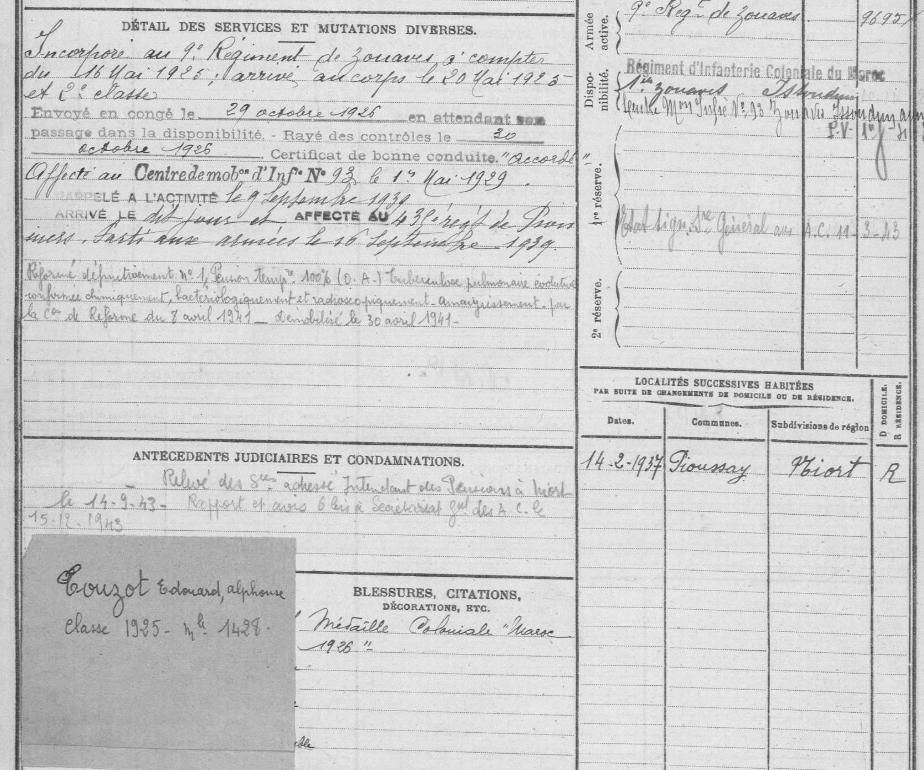 DÉTAIL DES SERVICES ET MUTATIONS DIVERSES.
Incorporé au 9e Régiment de zouaves à compter
du 16 Mai 1925. arrivé au corps le 20 Mai 1925
et 2e classe
Envoyé en congé le 29 octobre 1926 en attendant son
passage dans la disponibilité. - Rayé des contrôles le 30
octobre 1926. Certificat de bonne conduite. "accordé"
Affecté au Centre de mobon d'Infie No 93 le 1er Mai 1929.
RAPPELÉ A L'ACTIVITÉ le 9 Septembre 1939
ARRIVÉ LE dit jour et AFFECTÉ AU régt de Pion
niers. Parti aux armées le 16 Septembre 1939.
Réformé définitivement no 1, Pension tempre 100% (D.A.) tuberculose pulmonaire évolutive
confirmée cliniquement, bactériologiquement et radioscopiquement. Amaigrissement. par
la Con de Réforme du 8 avril 1941 _ Démobilisé le 30 avril 1941 -
ANTÉCÉDENTS JUDICIAIRES ET CONDAMNATIONS.
- Relevé des Sces adressé Intendant des Pensions à Niort
le 14-9-43 - Rapport et avis 6 bis à Secrétariat Gal des A.C. le
15-12-1943
Touzot Edouard, alphonse
Classe 1925 - Mle 1428.
BLESSURES, CITATIONS,
DÉCORATIONS, ETC.
Médaille Coloniale "Maroc
1926"
Armée active.
9e Régt de zouaves. 9695
Disponibilité.
Régiment d'Infanterie Coloniale du Maroc
zouaves Issoudun
Centre Mon Infie No 93 Zouaves Issoudun
P.V.
1re réserve.
Etat Sign. Sre Général des A.C. 11-3-43
2e réserve.
LOCALITÉS SUCCESSIVES HABITÉES
PAR SUITE DE CHANGEMENTS DE DOMICILE OU DE RÉSIDENCE.
Dates. Communes. Subdivisions de région D DOMICILE. R RÉSIDENCE.
14-2-1937 Pioussay Niort R